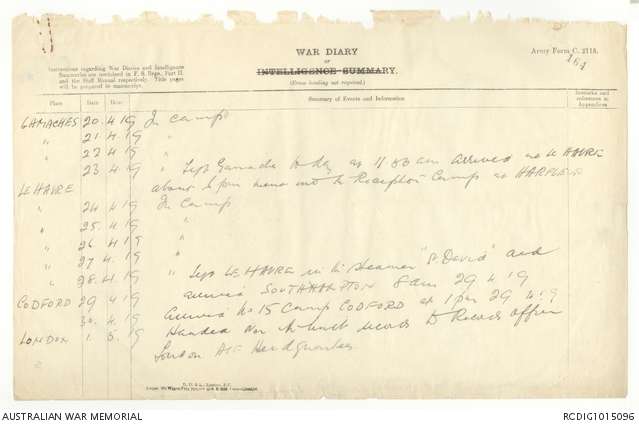 WAR DIARY
or
INTELLIGENCE SUMMARY.
(Erase heading not required.)
Army Form C. 2118.
161
Instructions regarding War Diaries and Intelligence
Summaries are contained in F. S. Regs., Part II
and the Staff Manual respectively. Title pages
will be prepared in manuscript.
Place Date Hour Summary of Events and Information Remarks and references to Appendices
GAMACHES 20. 4. 19 In camp
" 21. 4. 19 "
" 22. 4. 19 "
" 23. 4. 19 " Left Gamaches to day at 11 am arrived at LE HAVRE
LE HAVRE about 6 pm into Reception Camp at HARFLEUR
" 24. 4. 19 In camp
" 25. 4. 19 "
" 26. 4. 19 "
" 27. 4. 19 "
" 28. 4. 19 " Left LE HAVRE in Steamer "St David" and
CODFORD 29 4. 19 arrived SOUTHAMPTON 8 am 29 4 19
30. 4. 19 Arrived No 15 Camp CODFORD at 1 pm 29 4. 19
LONDON 1. 5. 19 Handed over unit records to Records office
London AIF Headquarters
AUSTRALIAN WAR MEMORIAL
RCDIG1015096